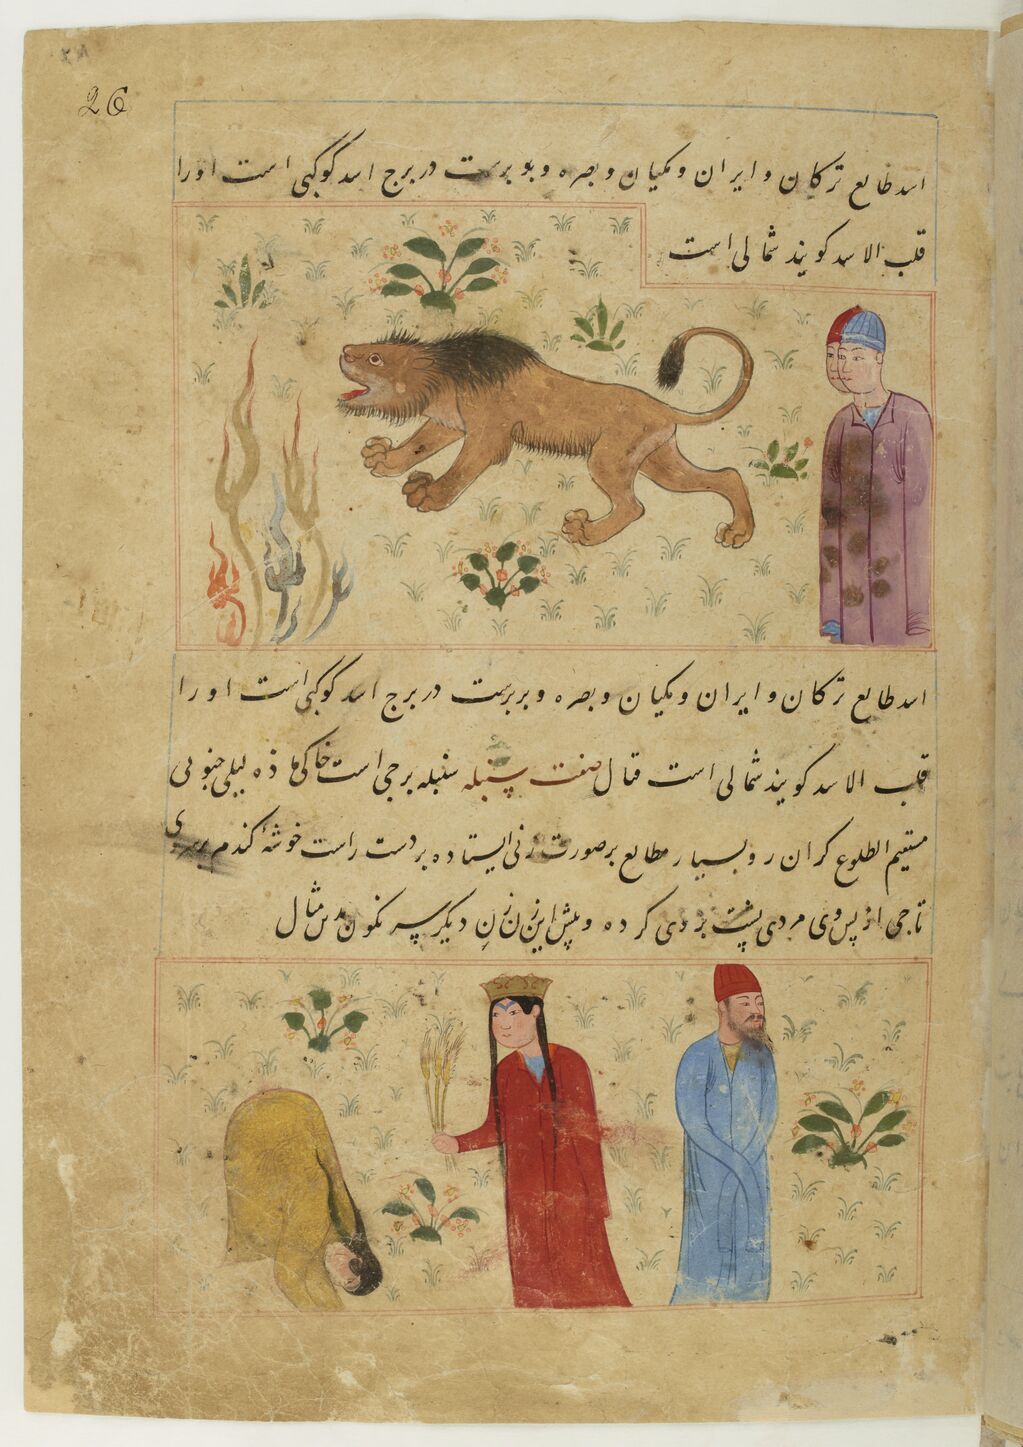 26
اسد طالع ترکان و ایران و مکیان و بصره و بو برست در برج اسد کوکبی است اورا
قلب الاسد کویند شمالی است
اسد طالع ترکان و ایران و مکیان و بصره و بربرست در برج اسد کوکبی است اورا
قلب الاسد کویند شمالی است صفت سنبله سنبله برجی است خاکی ماده لیلی جنوبی
مستقیم الطلوع کران رو بسیار مطالع برصورت زنی ایستاده بردست راست خوشهٔ کندم برسری
تاجی از پس وی مردی پشت بروی کرده و پیش این زن زن دیکر سر نکون بدین مثال